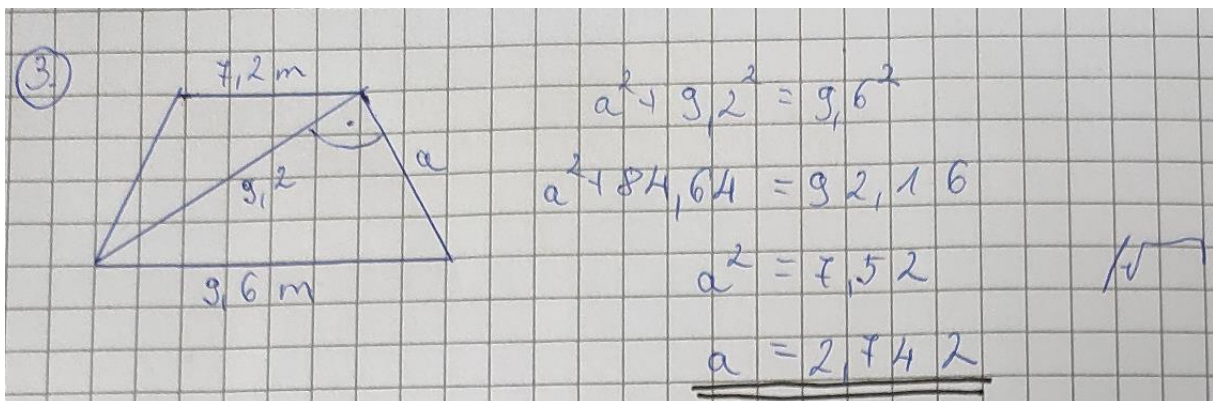 3.
7,2 m
9,2
a
9,6 m
a² + 9,2² = 9,6²
a² + 84,64 = 92,16
a² = 7,52 /√
a = 2,742